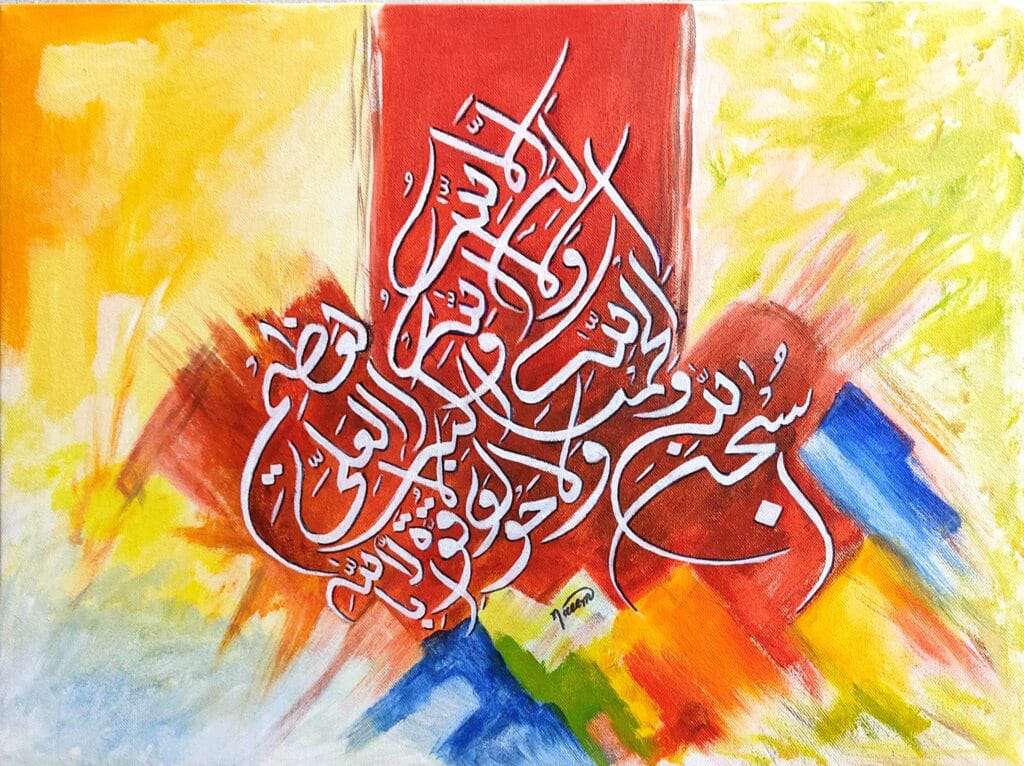 سُبْحَانَ اللَّهِ وَالْحَمْدُ لِلَّهِ وَلَا إِلَهَ إِلَّا اللَّهُ وَاللَّهُ أَكْبَرُ وَلَا حَوْلَ وَلَا قُوَّةَ إِلَّا بِاللَّهِ الْعَلِيِّ الْعَظِيمِ
Naeem